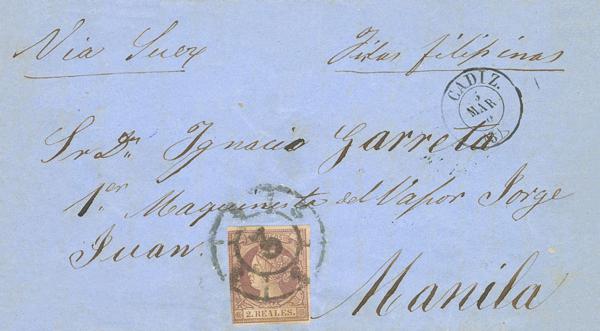 Via Suez
Filipinas
CADIZ.
5
MAR
Sr Dn Ignacio Garreta
1er Maquinista del Vapor Jorge
Juan.
Manila
2. REALES.